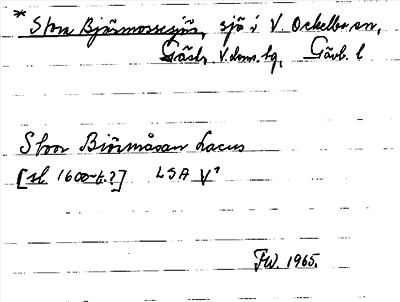 * Stora Björmossesjön, sjö i V. Ockelbo sn,
Gästr. V. doms. tg, Gävb. l
Stoor Biörmåsan Lacus
[sl 1600-t.?] LSA V¹
FW. 1965.